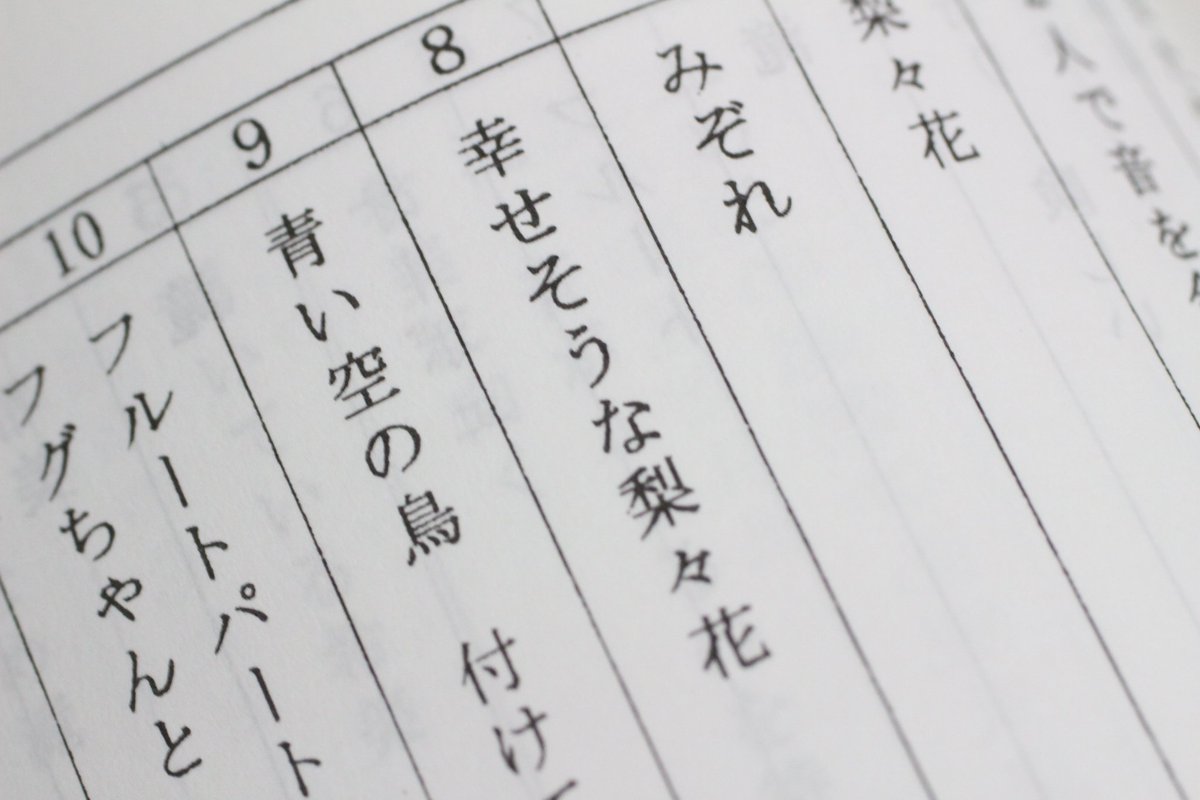 人で音を
梨々花
みぞれ
8
幸せそうな梨々花
9
青い空の鳥　付けて
10
フルートパート
フグちゃんと